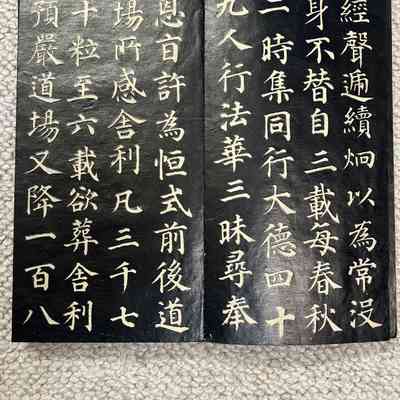 經聲遞續炯以為常没
身不替自三載每春秋
二時集同行大德四十
九人行法華三昧尋奉
恩旨許為恒式前後道
場所感舍利凡三千七
十粒至六載欲葬舍利
預嚴道場又降一百八